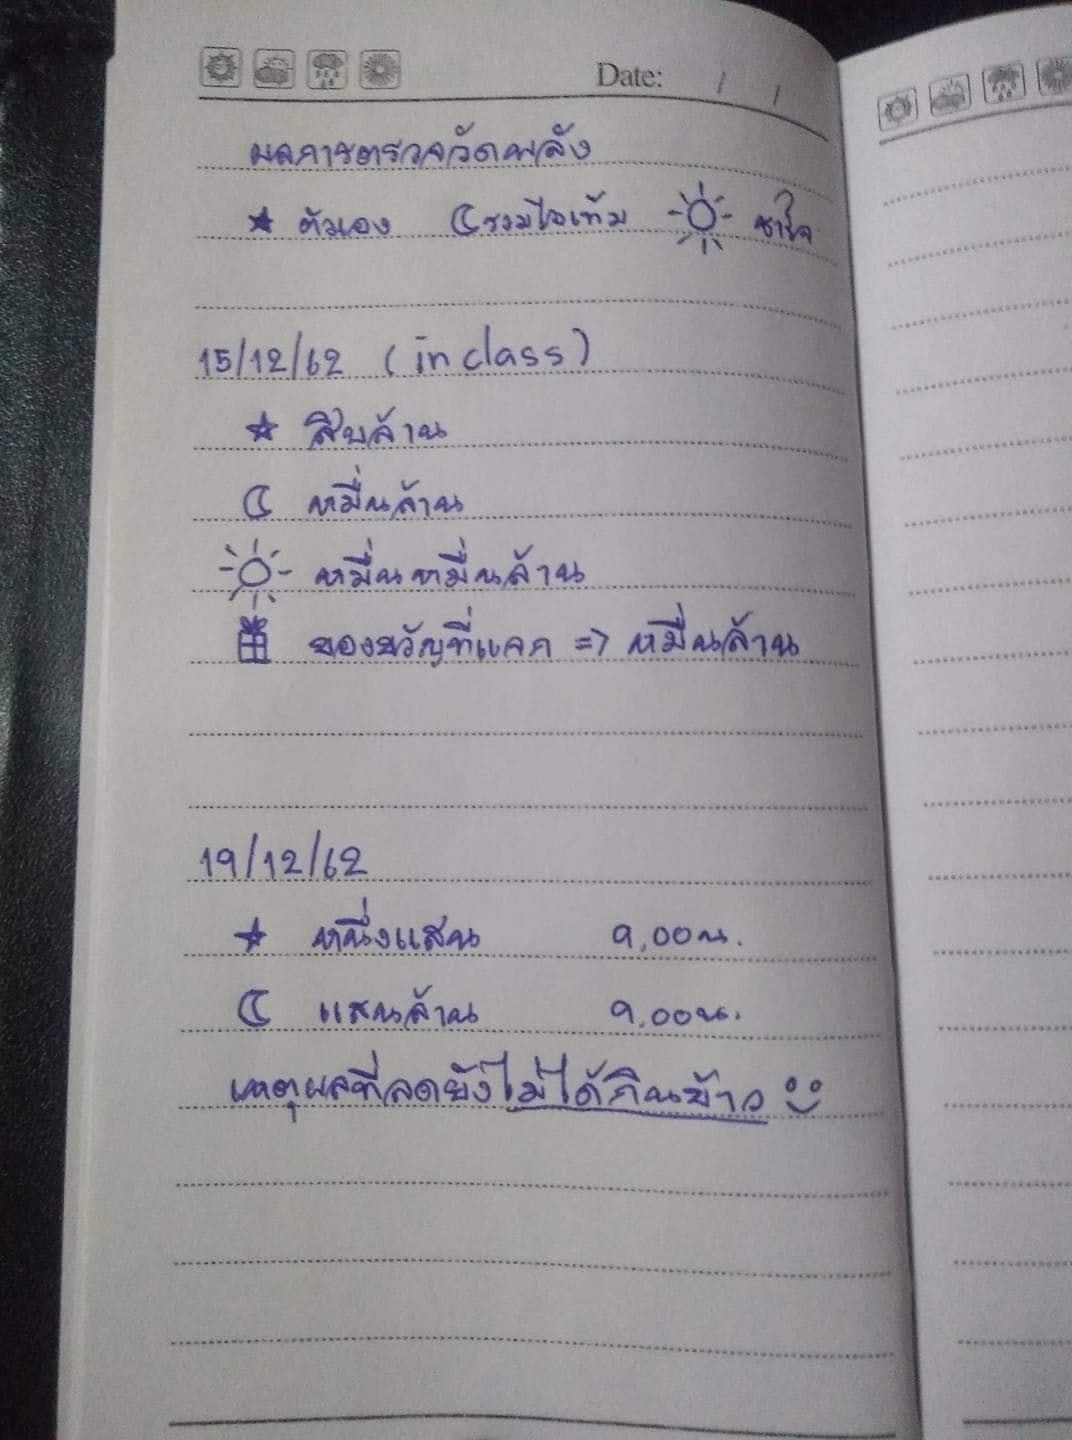 Date: / /
ผลการตรวจวัดพลัง
★ ตัวเอง ☾ รวมไอเท้ม ☼ ชาร์จ
15/12/62 (in class)
★ สิบล้าน
☾ หมื่นล้าน
☼ หมื่นหมื่นล้าน
ของขวัญที่แจก => หมื่นล้าน
19/12/62
★ หนึ่งแสน 9.00น.
☾ แสนล้าน 9.00น.
เหตุผลที่ลดยังไม่ได้กินข้าว